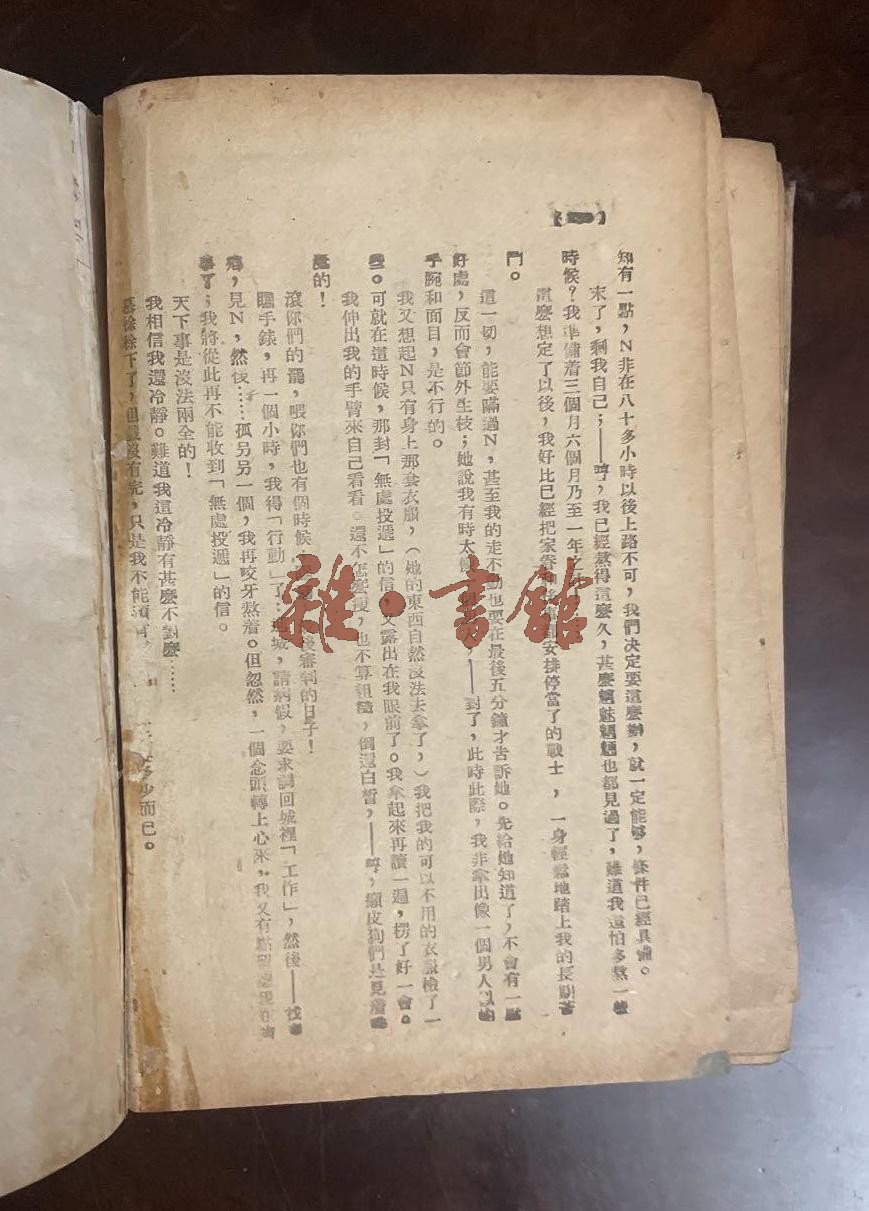 知有一點，N非在八十多小時以後上路不可，我們決定要這麼辦，就一定能够，條件已經具備。
末了，剩我自己；——哼，我已經熬得這麼久，甚麼魑魅魍魎也都見過了，難道我還怕多熬一些
時候？我準備着三個月六個月乃至一年之
這麼想定了以後，我好比已經把家眷和後 安排停當了的戰士，一身輕鬆地踏上我的長期苦
鬥。
這一切，能要瞞過N，甚至我的走不動也要在最後五分鐘才告訴她。先給她知道了，不會有一點
好處，反而會節外生枝；她說我有時太 ——對了，此時此際，我非拿出像一個男人似的
手腕和面目，是不行的。
我又想起N只有身上那套衣服，（她的東西自然沒法去拿了，）我把我的可以不用的衣服檢了一
些。可就在這時候，那封「無處投遞」的信，又露出在我眼前了。我拿起來再讀一遍，楞了好一會。
我伸出我的手臂來自己看看。還不怎麼瘦，也不算粗糙，倒還白皙，——哼，癩皮狗們是見着
的！
滾你們的罷，喂你們也有個時候 後審判的日子！
瞧手錶，再一個小時，我得「行動」了：進城，請病假，要求調回城裡「工作」，然後——找
，見N，然後……孤另另一個，我再咬牙熬着。但忽然，一個念頭轉上心來，我又有點
了；我將從此再不能收到「無處投遞」的信。
天下事是沒法兩全的！
我相信我還冷靜。難道我這冷靜有甚麼不對麼……
幕徐徐下了，但 沒有完，只是我不能 多少而已。
雜·書館